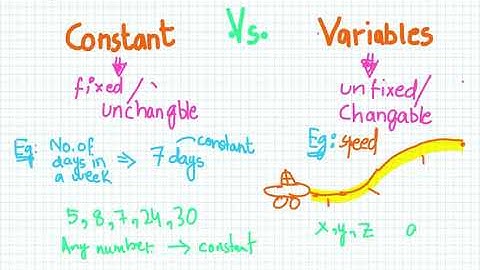 Constant Vs. Variables
fixed/
unchangble
unfixed/
Changable
Eg: No. of
days in
a week
⇒ 7 days
constant
Eg: speed
5, 8, 7, 24, 30
Any number → constant
x, y, z a